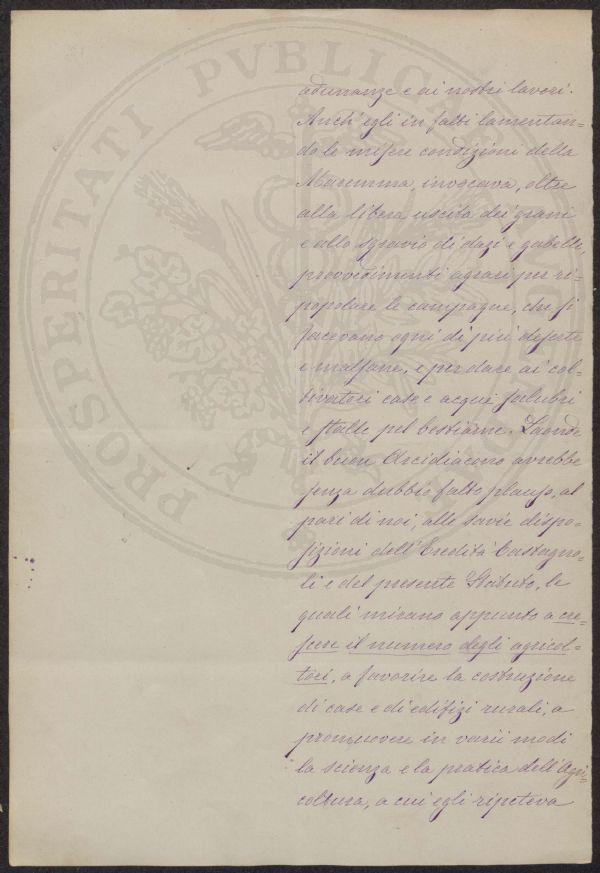 adunanze e ai nostri lavori.
Anch'egli in fatti lamentan=
do le misere condizioni della
Maremma, invocava, oltre
alla libera uscita dei grani
e allo sgravio di dazi e gabelle,
provvedimenti agrari per ri=
popolare le campagne, che si
facevano ogni dì più deserte
e malsane, e per dare ai col=
tivatori case e acque salubri
e stalle pel bestiame. Laonde
il buon Arcidiacono avrebbe
senza dubbio fatto plauso, al
pari di noi, alle savie dispo=
sizioni dell'Eredità Castagno=
li e del presente Statuto, le
quali mirano appunto a cre=
scere il numero degli agricol=
tori, a favorire la costruzione
di case e di edifizi rurali, a
promuovere in varii modi
la scienza e la pratica dell'Agri=
coltura, a cui egli ripeteva
PROSPERITATI PVBLICAE